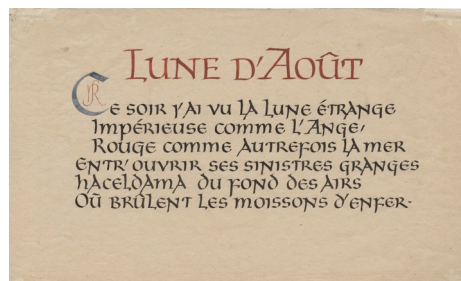 LUNE D'AOÛT
Ce soir j'ai vu la lune étrange
Impérieuse comme l'Ange,
Rouge comme autrefois la mer
Entr'ouvrir ses sinistres granges
haceldama du fond des airs
Où brûlent les moissons d'enfer.